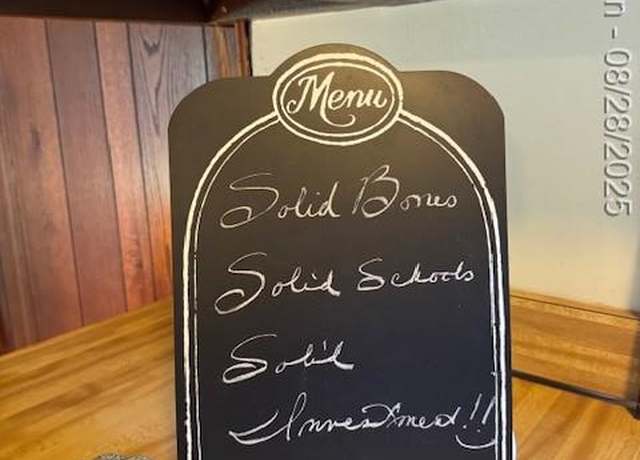 Menu
Solid Bones
Solid Schools
Solid
Investment!!
n - 08/28/2025